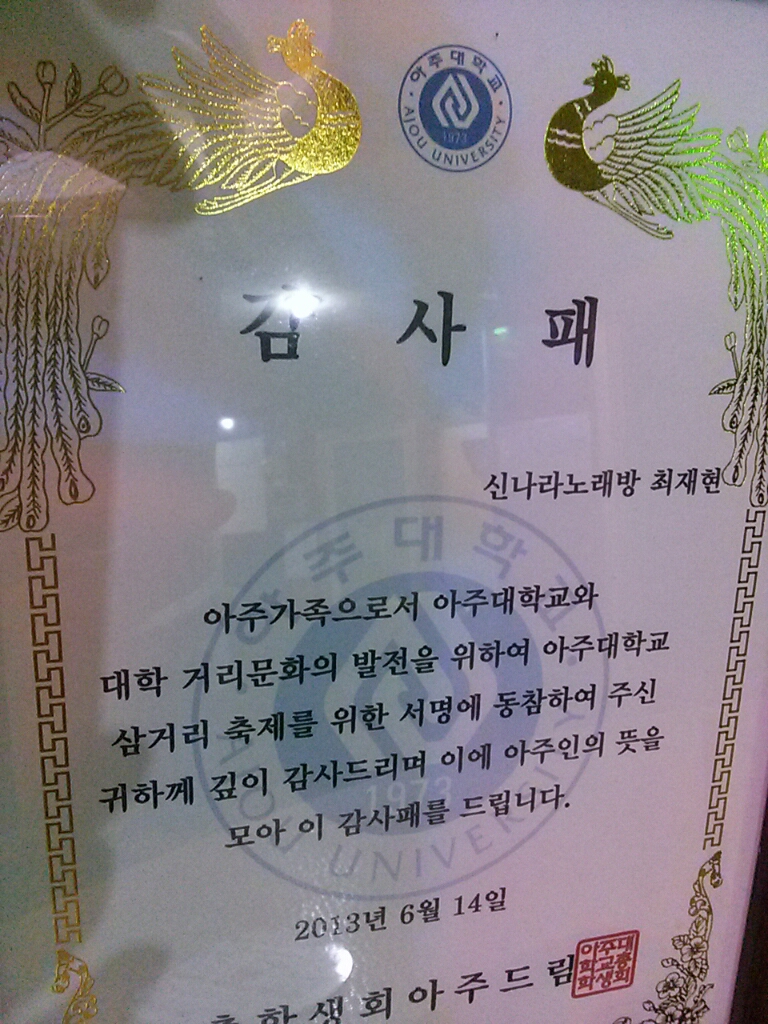 아주대학교
1973
AJOU UNIVERSITY
감사패
신나라노래방 최재현
아주가족으로서 아주대학교와
대학 거리문화의 발전을 위하여 아주대학교
삼거리 축제를 위한 서명에 동참하여 주신
귀하께 깊이 감사드리며 이에 아주인의 뜻을
모아 이 감사패를 드립니다.
아주대학교
1973
AJOU UNIVERSITY
2013년 6월 14일
총학생회아주드림
아주대
학교총
학생회